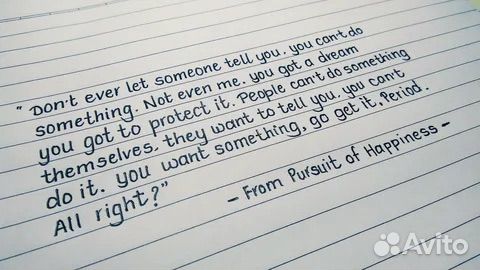 "Don't ever let someone tell you. you can't do
something. Not even me. you got a dream
you got to protect it. People can't do something
themselves. they want to tell you. you can't
do it. you want something, go get it. Period.
All right?"
- From Pursuit of Happiness -
Avito